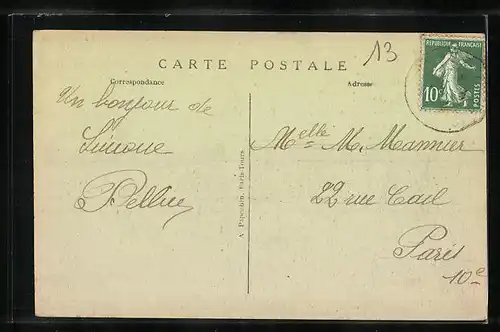 13
CARTE POSTALE
REPUBLIQUE FRANÇAISE
10c
POSTES
Correspondance
Adresse
Un bonjour de
Simone
Melle M. Mannier
22 rue Cail
Paris
10e
A. Papeghin, Paris-Tours.